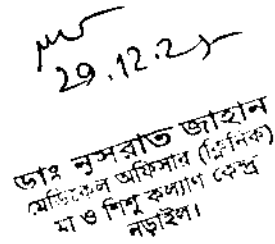 29.12.25
ডাঃ নুসরাত জাহান
মেডিকেল অফিসার (ক্লিনিক)
মা ও শিশু কল্যাণ কেন্দ্র
নড়াইল।